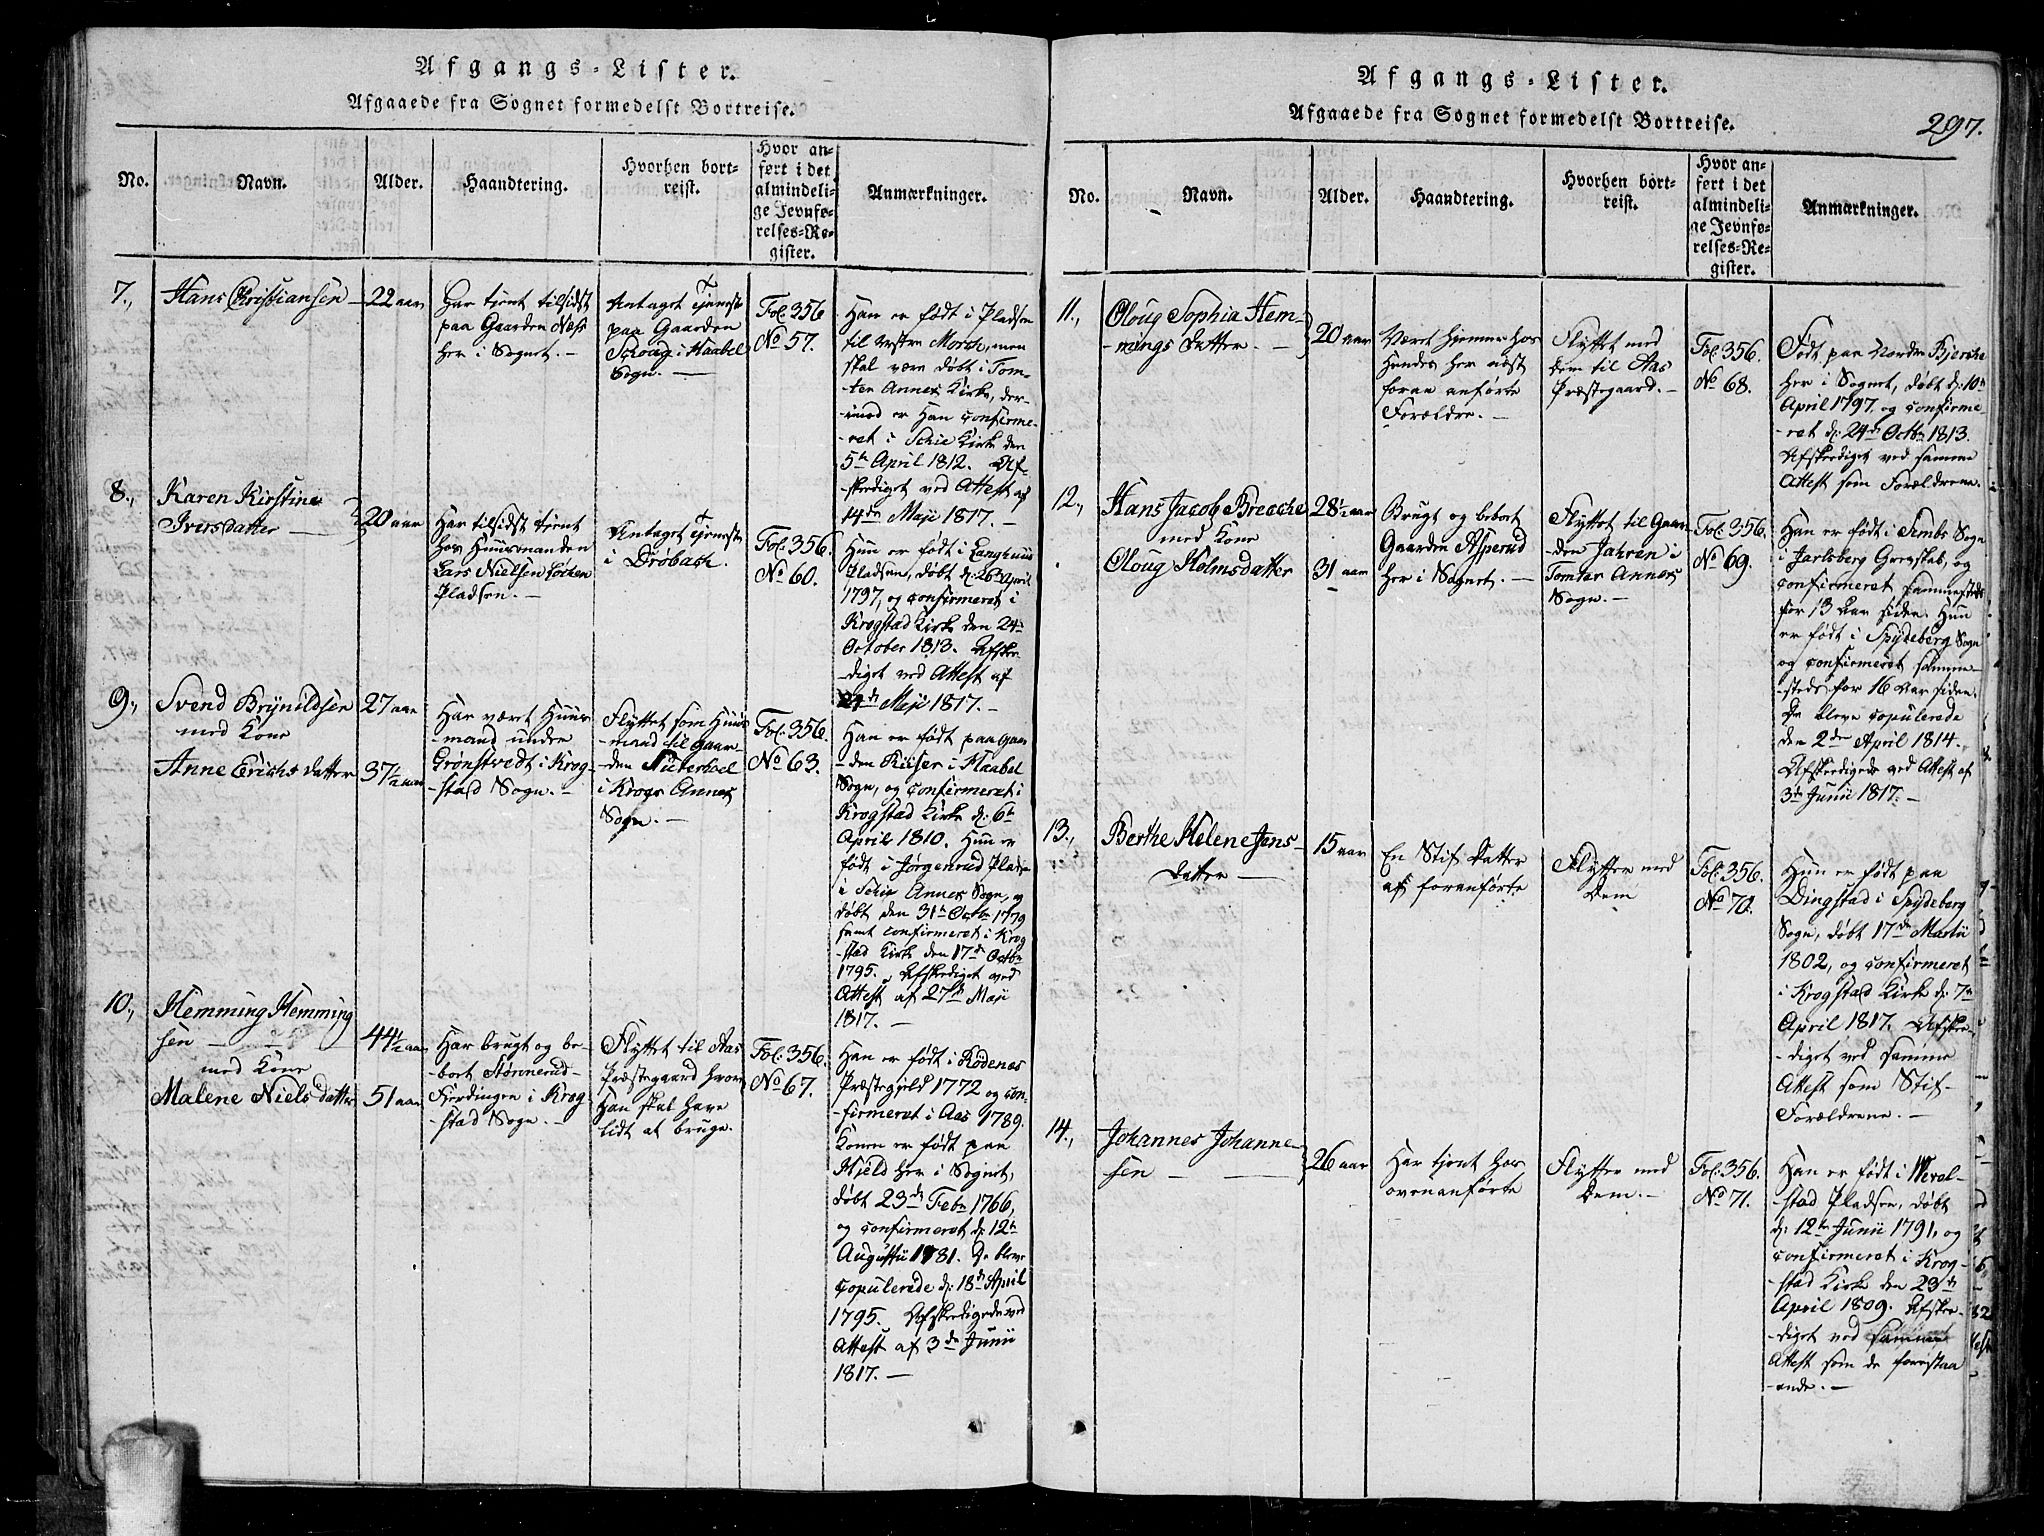 Afgangs-Lister.
Afgaaede fra Sognet formedelst Bortreise.
No.
Navn.
Alder.
Haandtering.
Hvorhen bort-
reist.
Hvor an-
ført i det
almindeli-
ge Jevnfø-
relses-Re-
gister.
Anmærkninger.
7.,
Hans Christiansen
22 aar
Har tjent tilsidst
paa Gaarden Næss
her i Sognet. —
Antaget Tjeneste
paa Gaarden
Schoug i Haabel
Sogn. —
Fol. 356
No 57.
Han er født i Pladsen
til Vestre Morch, men
skal være døbt i Tom-
ter Annex Kirke, der-
imod er Han confirme-
-ret i Schie Kirke den
5te April 1812. Af-
skediget ved Attest af
14de Maji 1817. —
8.,
Karen Kirstine
Iversdatter —
20 aar
Har tilsidst tjent
hos Huusmanden
Lars Nielsen Løcken
Pladsen. —
Antaget Tjeneste
i Drøbach.
Fol. 356.
No 60.
Hun er født i Langhuus
Pladsen, døbt d: 26de April
1797, og confirmeret i
Krogstad Kirke den 24de
October 1813. Afske-
-diget ved Attest af
24de Maji 1817. —
9.,
Svend Brynildsen
med Kone
Anne Erichs datter
27 aar
37½ aar
Har været Huus-
-mand under
Grønstvedt i Krog-
-stad Sogn. —
Flyttet som Huus
-mand til Gaar-
-den
i Krogs Annex
Sogn. —
Fol. 356.
No 63.
Han er født paa Gaar
-den Riiser i Haabel
Sogn, og confirmeret i
Krogstad Kirke d: 6te
April 1810. Hun er
født i Jørgenrud Pladsen
i Schie Annex Sogn, og
døbt den 31te Octbr 1779
samt confirmeret i Krog
-stad Kirke den 17de Octbr
1795. Afskediget ved
Attest af 27de Maji
1817. —
10.,
Hemming Hemming
sen —
med Kone
Malene Niels datter
44½ aar
51 aar
Har brugt og be-
-boet Stønnerud-
Fierdingen i Krog
-stad Sogn. —
Flyttet til Aas
Præstegaard hvor
Han skal have
lidt at bruge.
Fol. 356.
No 67.
Han er født i Rødenes
Præstegjeld 1772 og con-
-firmeret i Aas 1789.
Konen er født paa
Hjeld her i Sognet,
døbt 23de Febr 1766,
og confirmeret d: 12te
Augustii 1781. De bleve
copulerede d: 18de April
1795. Afskedigede ved
Attest af 3de Junii
1817. —
Afgangs-Lister.
Afgaaede fra Sognet formedelst Bortreise.
297.
No.
Navn.
Alder.
Haandtering.
Hvorhen bort-
reist.
Hvor an-
ført i det
almindeli-
ge Jevnfø-
relses-Re-
gister.
Anmærkninger.
11.,
Oloug Sophia Hem-
-mings Datter. —
20 aar
Været hjemme hos
Hendes her næst
foran anførte
Forældre. —
Flyttet med
dem til Aas
Præstegaard. —
Fol. 356.
No 68.
Født paa Nordre Bjercke
her i Sognet, døbt d: 10de
April 1797. og confirme
-ret d: 24de Octbr 1813.
Afskediget ved samme
Attest som Forældrene.
12.,
Hans Jacob Breche
med Kone
Oloug Holmsdatter
28½ aar
31 aar
Brugt og beboet
Gaarden Asperud
her i Sognet. —
Flyttet til Gaar-
-den Jahren i
Tomter Annex
Sogn. —
Fol. 356.
No 69.
Han er født i Sembs Sogn
i Jarlsberg Grevskab, og
confirmeret sammesteds
for 13 Aar siden. Hun
er født i Spydeberg Sogn
og confirmeret samme-
-steds for 16 Aar siden.
De bleve copulerede
den 2den April 1814.
Afskedigede ved Attest af
3de Junii 1817. —
13.,
Berthe Helene Jens-
Datter —
15 aar
En Stif Datter
af foranførte
Flytter med
Dem
Fol. 356.
No 70.
Hun er født paa
Dingstad i Spydeberg
Sogn, døbt 17de Martii
1802, og confirmeret
i Krogstad Kirke d: 7de
April 1817. Afske-
-diget ved samme
Attest som Stif-
Forældrene. —
14.,
Johannes Johanne-
sen —
26 aar
Har tjent hos
ovenanførte
Flytter med
Dem. —
Fol. 356.
No 71.
Han er født i Weval-
-stad Pladsen, døbt
d: 12te Junii 1791, og
confirmeret i Krog-
-stad Kirke den 23de
April 1809. Afske-
-diget ved samme
Attest som de forestaa
-ende. —